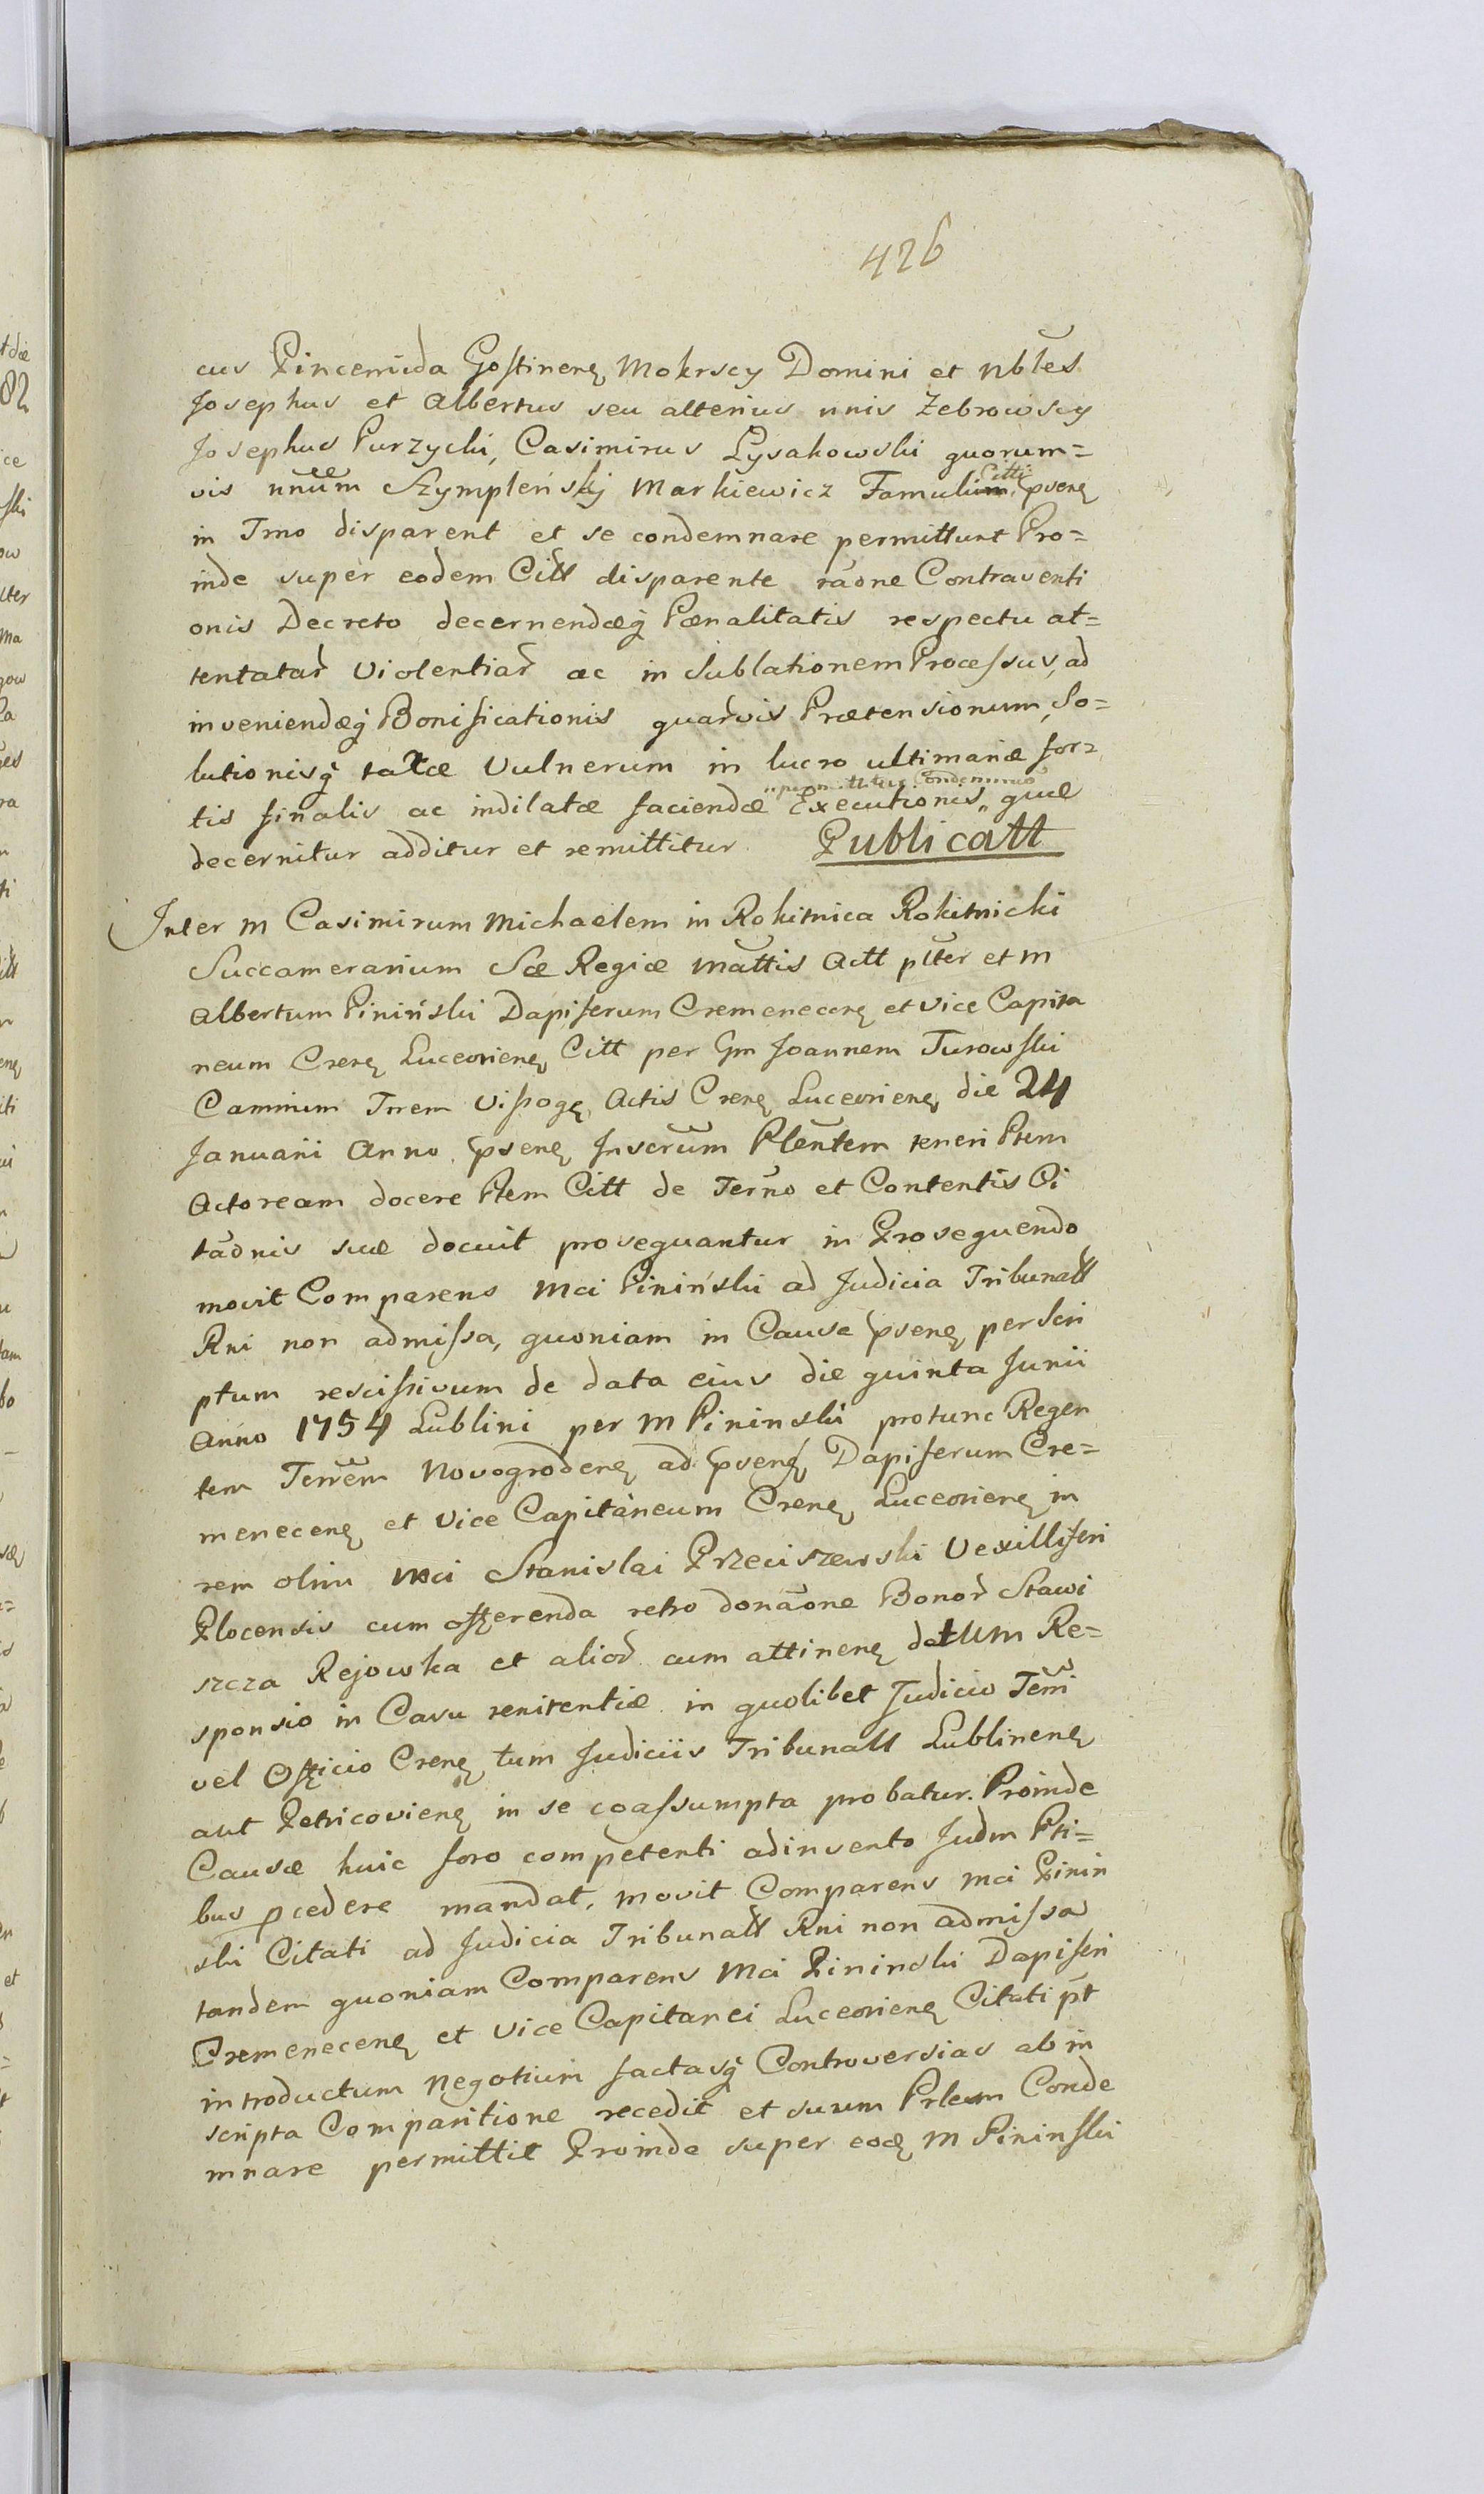 426
cus Pincernida Gostinenę Mokrscy Domini et Nbles
Josephus et Albertus seu alterius nnis Zebrowscy
Josephus Purzycki, Casimirus Lysakowski quorum=
vis nnum Szympleński Markiewicz Famuli Citti psenę
in Trno disparent et se condemnare permittunt Pro=
inde super eodem Citt disparente raone Contraventi
onis Decreto decernendæq Pænalitatis respectu at=
tentatar Violentiar ac in Sublationem Processus, ad
inveniendæq Bonificationis quarvis Prætensionum, So=
lutionisq taxæ Vulnerum in lucro ultimariæ for=
"permittitur Condemnao
tis finalis ac indilatæ faciendæ Executionis„ quæ
decernitur additur et remittitur. Publicatt
Inter M Casimirum Michaelem in Rokitnica Rokitnicki
Succamerarium Sæ Regiæ Mattis Actt plter et M
Albertum Piniński Dapiferum Cremenecenę et Vice Capita
neum Crenę Luceorienę Citt per Gm Joannem Turowski
Camnium Trrem Vissogę Actis Crenę Luceorienę die 24
Januarii Anno psenę Inserum Plentem teneri Ptem
Actoream docere Ptem Citt de Terno et Contentis Ci
taonis suæ docuit prosequantur in Prosequendo
movit Comparens Mci Piniński ad Judicia Tribunatt
Rni non admissa, quoniam in Causa psenę per Scri
ptum rescissivum de data eius die quinta Junii
Anno 1754 Lublini per M Pininski protunc Regen
tem Terrem Novogrodenę ad psenę Dapiferum Cre=
menecenę et Vice Capitaneum Crenę Luceorienę in
rem olim Mci Stanislai Przeciszewski Vexilliferi
Plocensis cum offerenda retro donaone Bonor Stawi
szcza Rejowka et alior cum attinenę datum Re=
sponsio in Casu renitentiæ in quolibet Judicio Terri
vel Officio Crenę tum Judiciis Tribunatt Lublinenę
aut Petricovienę in se coassumpta probatur. Proinde
Causæ huic foro competenti adinvento Judm Pti=
bus pcedere mandat, movit Comparens Mci Pinin
ski Citati ad Judicia Tribunatt Rni non admissa
tandem quoniam Comparens Mci Pininski Dapiferi
Cremenecenę et Vice Capitanei Luceorienę Citati pt
introductum Negotium factasq Controversias ab in
scripta Comparitione recedit et suum Prlem Conde
mnare permittit Proinde super eodę M Pininski